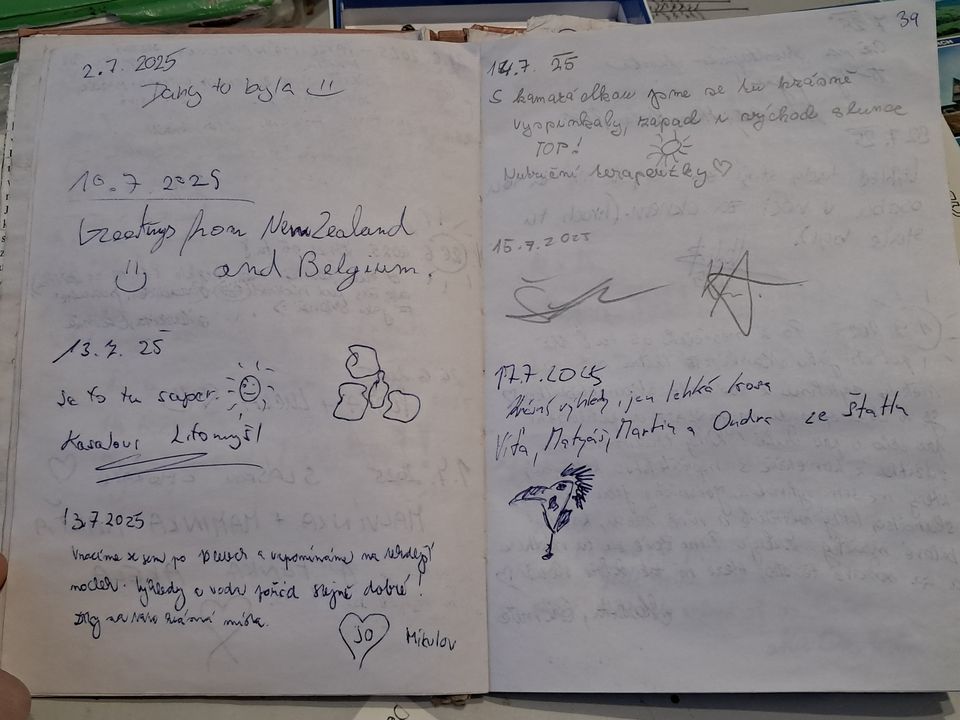 2.7. 2025
Dany to byla
10.7 2025
Greetings from New Zealand
and Belgium.
13.7. 25
Je to tu super.
Kasalovi Litomyšl
13.7.2025
Vracíme se sem po letech a vzpomínáme na tehdejší
nocleh. Výhledy a voda pořád stejně dobré!
Díky za krásná místa.
JO Mikulov
39
14.7. 25
S kamarádkou jsme se tu krásně
vyspinkaly, západ i východ slunce
TOP!
Nutriční terapeutky ♡
15.7.2025
17.7.2025
Krásné výhledy, jen lehká kosa
Víťa, Matyáš, Martin a Ondra ze Štatlu